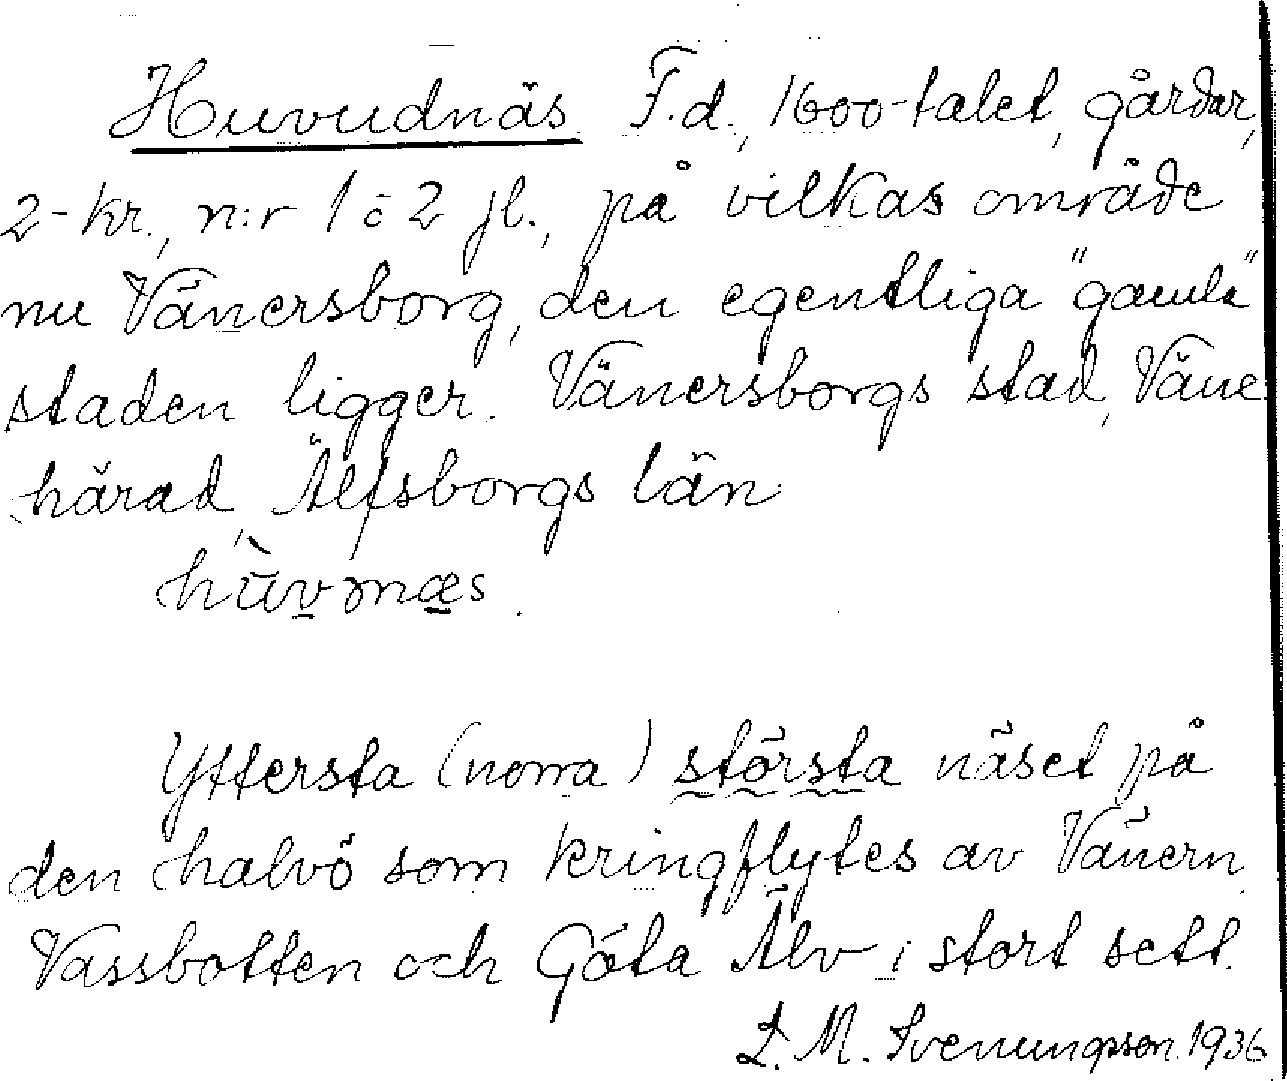 Huvudnäs F.d., 1600-talet, gårdar,
2-kr., n:r 1 o 2 fl., på vilkas område
nu Vänersborg, den egentliga "gamla"
staden ligger. Vänersborgs stad, Väne
härad, Älfsborgs län
hùvnæs.
Yttersta (norra) största näset på
den halvö som kringflytes av Vänern
Vassbotten och Göta Älv i stort sett.
L. M. Svenungsson 1936